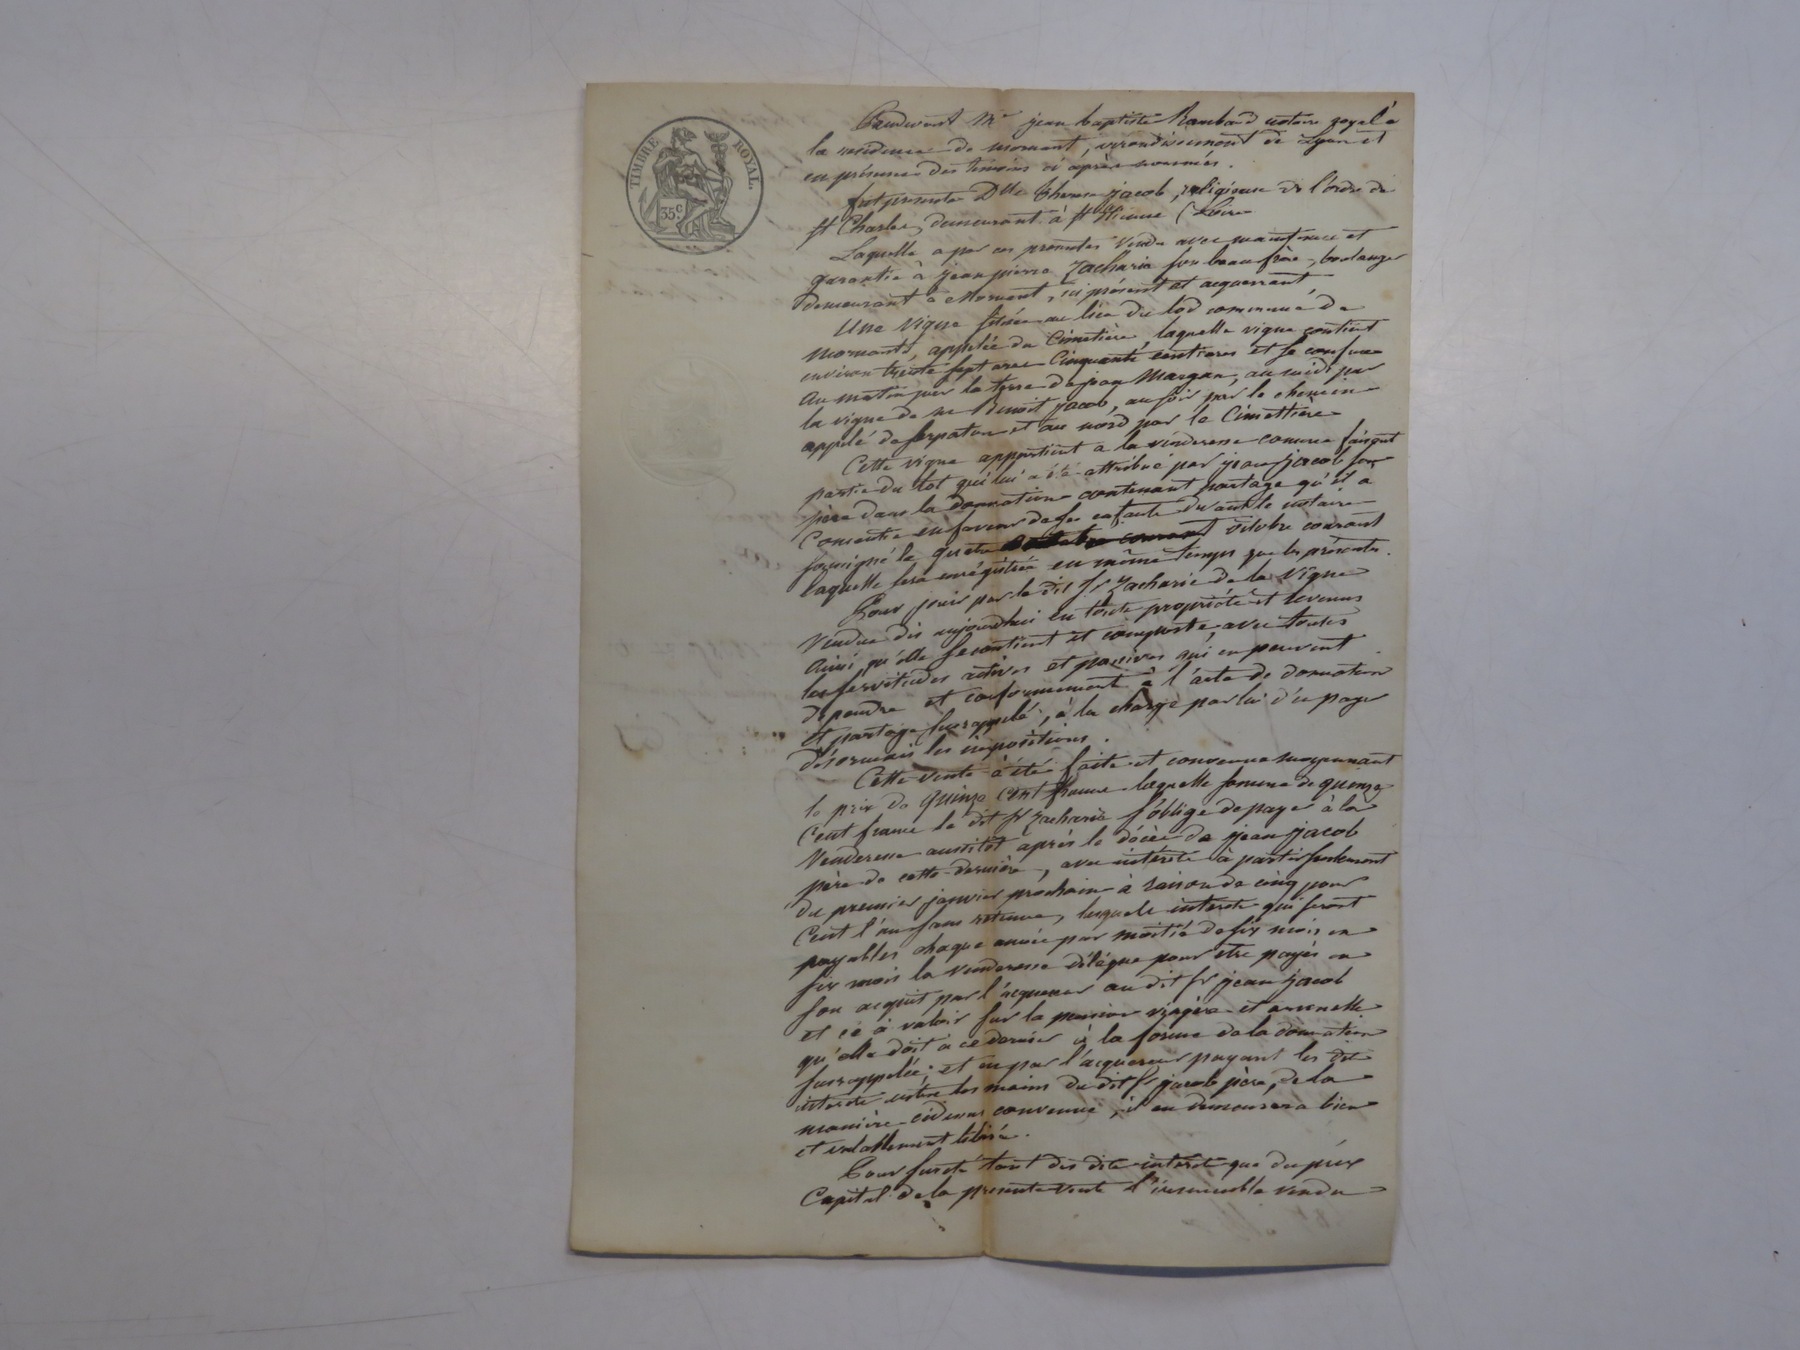 TIMBRE ROYAL.
35c
Pardevant Me jean baptiste Rambaud notaire royal à
la residence de mornant, arrondissement de Lyon et
en présence des témoins ci après nommés.
fut presente Dlle Therese jacob, religieuse de l'ordre de
st Charles, demeurant à st Etienne (Loire
Laquelle a par ces presentes vendu avec maintenue et
garantie à jean pierre Zacharie son beau frère, boulanger
demeurant à Mornant, ici présent et acquerrant,
Une vigne située au lieu du lod commune de
mornant, appelée du Cimetière, laquelle vigne contient
environ trente sept ares Cinquante centiares et se confine
au matin par la terre de jean Margan, au midi par
la vigne de me Benoit jacob, au soir par le chemin
appelé de et au nord par le Cimettière
Cette vigne appartient a la venderesse comme faisant
partie du lot qui lui a été attribué par jean jacob son
père dans la donnation contenant partage qu'il a
Consentie en faveur de ses enfants devant le notaire
soussigné le quatre octobre courant
laquelle sera enrégistrée en même temps que les présentes.
Pour jouir par le dit sr Zacharie de la vigne
vendue dès aujourdhui en toute propriété et revenus
ainsi qu'elle se contient et comporte, avec toutes
les servitudes actives et passives qui en peuvent
dépendre et conformement à l'acte de donnation
et partage susrappelé, à la charge par lui d'en payer
désormais les impositions.
Cette vente à été faite et convenue moyennant
le prix de quinze Cent francs laquelle somme de quinze
Cent francs le dit sr Zacharie s'oblige de payer à la
Venderesse aussitôt après le décès de jean jacob
père de cette dernière, avec intérêts à partir seulement
du premier janvier prochain à raison de cinq pour
Cent l'an sans retenue, lesquels interets qui seront
payables chaque année par moitié de six mois en
six mois la venderesse délégue pour être payés en
son acquit par l'acquereur au dit sr jean jacob
et ce à valoir sur la pension viagère et annuelle
qu'elle doit à ce dernier à la forme de la donnation
susrappelée; et en par l'acquereur payant les dits
interets entre les mains du dit sr jacob père, de la
manière cidessus convenue, il en demeurera bien
et valablement libéré.
Pour sureté tant des dits interets que du prix
Capital de la presente vente l'immeuble vendu